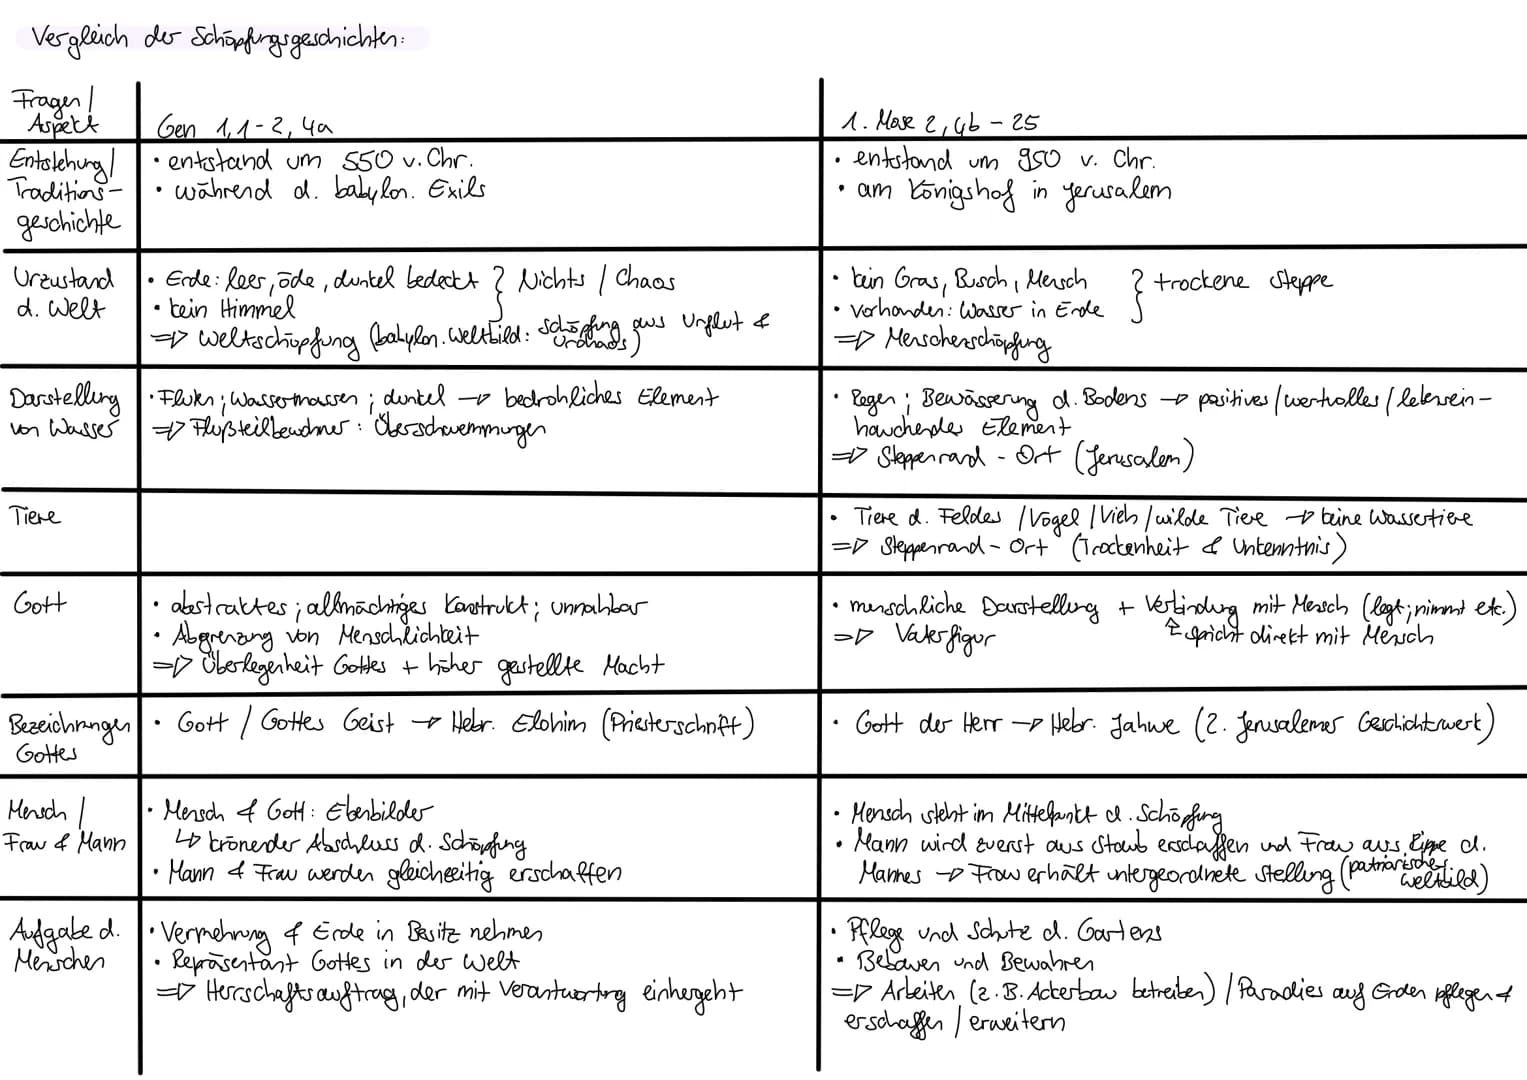 Vergleich der Schöpfungsgeschichten:
Fragen /
Aspekt
Gen 1,1-2, 4a
1. Mose 2,4b - 25
Entstehung /
Traditions-
geschichte
• entstand um 550 v. Chr.
• während d. babylon. Exils
• entstand um 950 v. Chr.
• am Königshof in Jerusalem
Urzustand
d. Welt
• Erde: leer, öde, dunkel bedeckt } Nichts / Chaos
• kein Himmel
=> Weltschöpfung (babylon. Weltbild: Schöpfung aus Urflut &
Urchaos)
• kein Gras, Busch, Mensch } trockene Steppe
• vorhanden: Wasser in Erde
=> Menschenschöpfung
Darstellung
von Wasser
• Fluten; Wassermassen; dunkel -> bedrohliches Element
=> Flußteilbewohner: Überschwemmungen
• Regen; Bewässerung d. Bodens -> positives / wertvolles / lebensein-
hauchendes Element
=> Steppenrand - Ort (Jerusalem)
Tiere
• Tiere d. Feldes / Vögel / Vieh / wilde Tiere -> keine Wassertiere
=> Steppenrand - Ort (Trockenheit & Unkenntnis)
Gott
• abstraktes; allmächtiges Konstrukt; unnahbar
• Abgrenzung von Menschlichkeit
=> Überlegenheit Gottes + höher gestellte Macht
• menschliche Darstellung + Verbindung mit Mensch (legt; nimmt etc.)
=> Vaterfigur
↳ spricht direkt mit Mensch
Bezeichnungen
Gottes
• Gott / Gottes Geist -> Hebr. Elohim (Priesterschrift)
• Gott der Herr -> Hebr. Jahwe (2. Jerusalemer Geschichtswerk)
Mensch /
Frau & Mann
• Mensch & Gott: Ebenbilder
↳ krönender Abschluss d. Schöpfung
• Mann & Frau werden gleichzeitig erschaffen
• Mensch steht im Mittelpunkt d. Schöpfung
• Mann wird zuerst aus Staub erschaffen und Frau aus Rippe d.
Mannes -> Frau erhält untergeordnete Stellung (patriarisches
Weltbild)
Aufgabe d.
Menschen
• Vermehrung & Erde in Besitz nehmen
• Repräsentant Gottes in der Welt
=> Herrschaftsauftrag, der mit Verantwortung einhergeht
• Pflege und Schutz d. Gartens
• Bebauen und Bewahren
=> Arbeiten (z. B. Ackerbau betreiben) / Paradies auf Erden pflegen &
erschaffen / erweitern